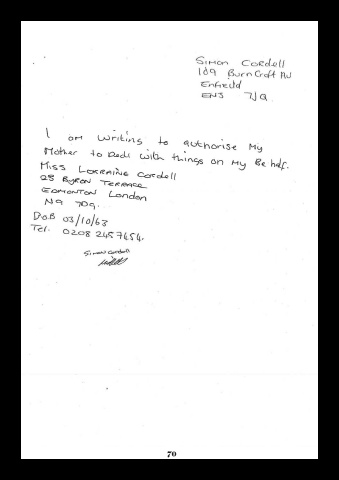 Simon Cordell
109 Burncroft Av
Enfield
EN3 7JQ
I am writing to authorise My
Mother to Deal with things on My Behalf.
Miss Lorraine Cordell
23 Byron Terrace
Edmonton London
N9 7DG.
D.o.B 03/10/63
Tel. 0208 2457454.
Simon Cordell
70